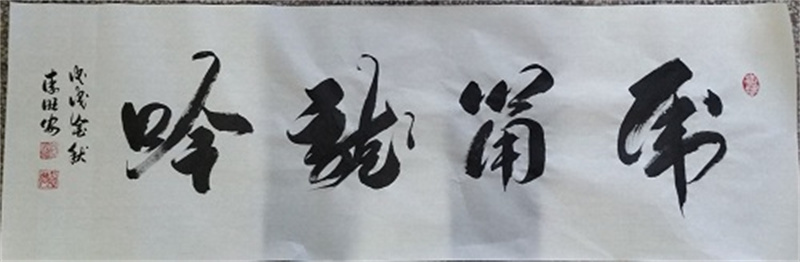 虎嘯龍吟
戊戌金秋